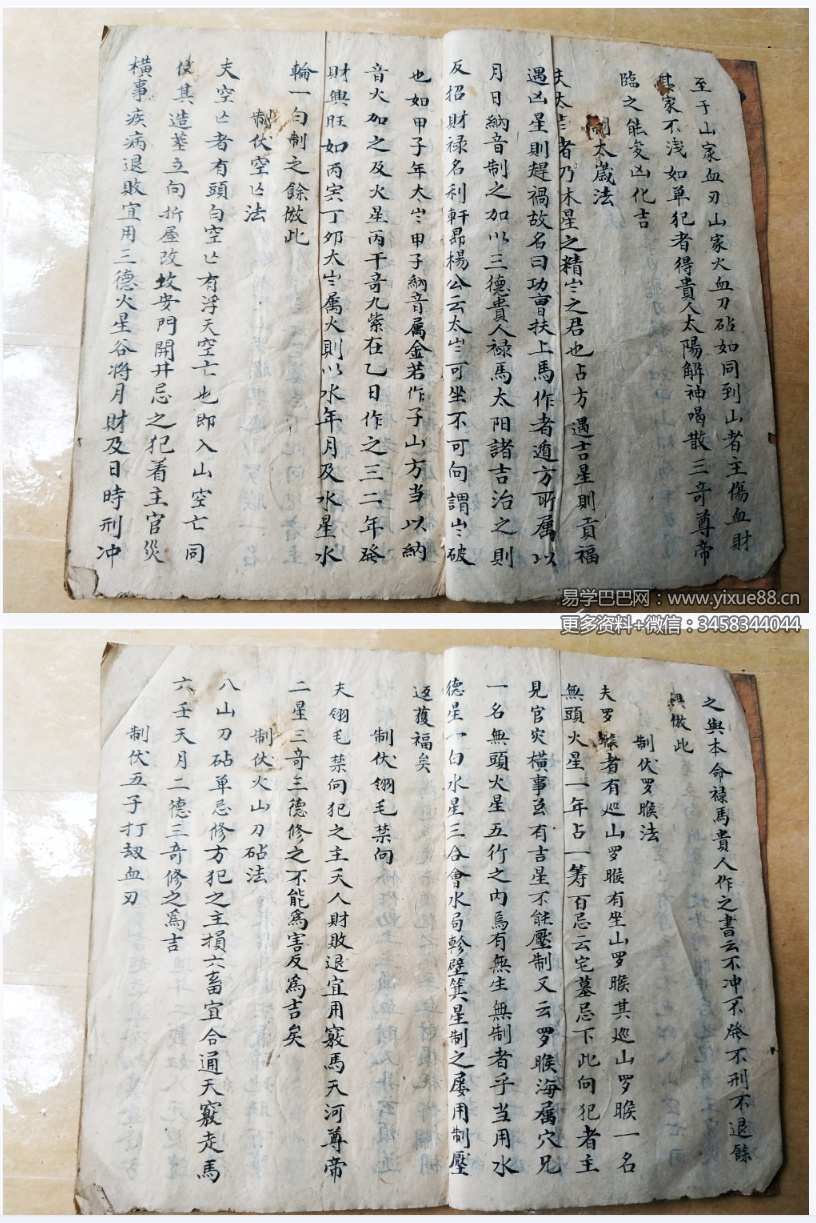 至于山家血刃山家火血刀砧如同到山者主傷血財
其家不浅如单犯者得貴人太陽解神喝散三奇尊帝
臨之能变凶化吉
制太歲法
夫太岁者乃木星之精岁之君也占方遇吉星則貢福
遇凶星則趕禍故名曰功曹扶上馬作者遁方所属以
月日納音制之加以三德貴人禄馬太阳諸吉治之則
反招財禄名利軒昂楊公云太岁可坐不可向謂岁破
也如甲子年太岁甲子納音属金若作子山方当以納
音火加之及火星丙干奇九紫在乙日作之三二年發
財興旺如丙寅丁夘太岁属火則以水年月及水星水
輪一白制之餘倣此
制伏空亡法
夫空亡者有頭白空亡有浮天空亡也即入山空亡同
其造葬立向折屋改坟安門開井忌之犯着主官災
橫事疾病退敗宜用三德火星谷将月財及日時刑冲
易学巴巴网：www.yixue88.cn
更多资料+微信：3458344044
之與本命禄馬貴人作之書云不冲不發不刑不退餘
倣此
制伏罗睺法
夫罗睺者有廵山罗睺有坐山罗睺其廵山罗睺一名
無頭火星一年占一筹百忌云宅墓忌下此向犯者主
見官灾横事虽有吉星不能壓制又云罗睺海属穴兄
一名無頭火星五行之内焉有無生無制者乎当用水
德星一白水星三合會水局軫壁箕星制之屡用制壓
返獲福矣
制伏翎毛禁向
夫翎毛禁向犯之主夭人財敗退宜用竅馬天河尊帝
二星三奇三德修之不能爲害反爲吉矣
制伏火山刀砧法
八山刀砧单忌修方犯之主損六畜宜合通天竅走馬
六壬天月二德三奇修之爲吉
制伏五子打刼血刃